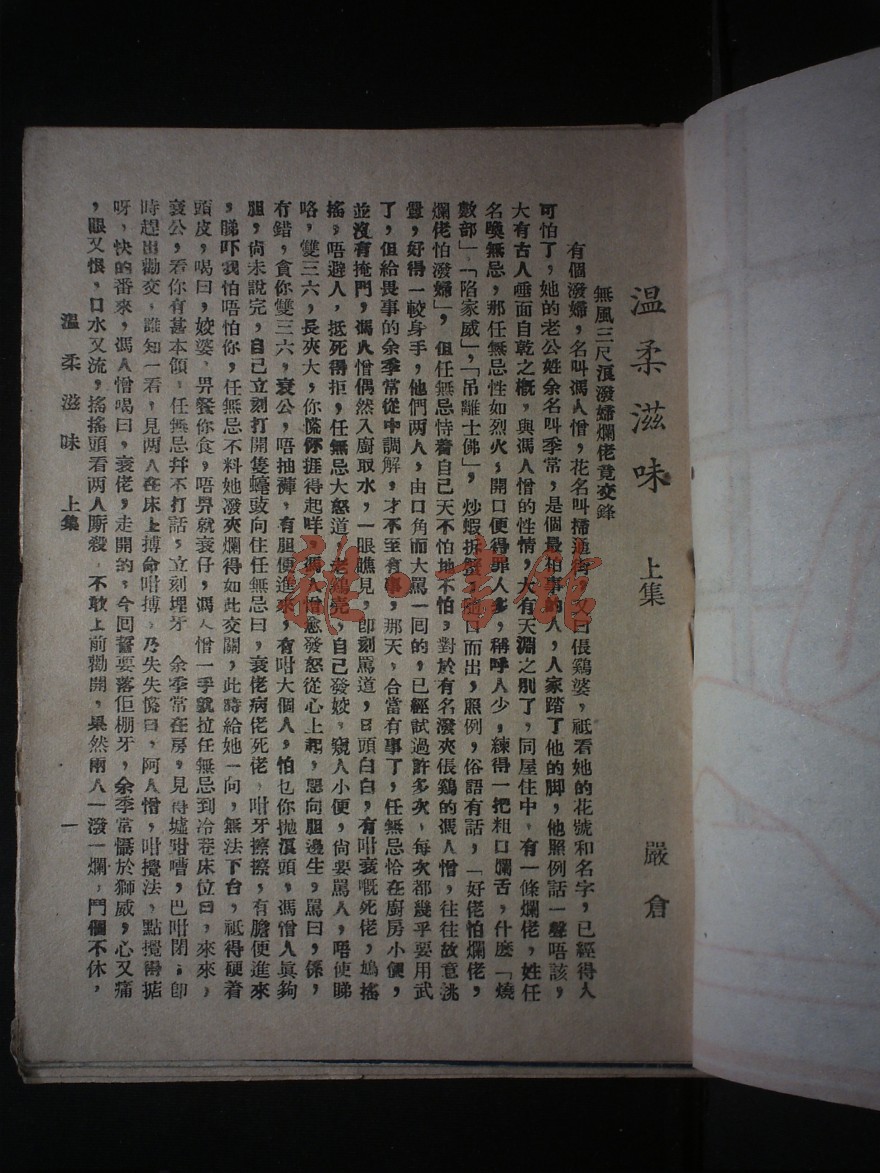 溫柔滋味 上集 嚴倉
無風三尺浪潑婦爛佬竟交鋒
有個潑婦，名叫馮人憎，花名叫掃通街，又曰倀鷄婆，祗看她的花號和名字，已經得人
可怕了，她的老公姓余名叫季常，是個最怕事的人，人家踏了他的脚，他照例話一聲唔該，
大有古人唾面自乾之概，與馮人憎的性情，大有天淵之別了，同屋住中，有一條爛佬，姓任
名喚無忌，那任無忌性如烈火，開口便得罪人多，稱呼人少，練得一把粗口爛舌，什麽「燒
數部」「陷家威」，「吊離士佛」，炒蝦拆蟹，隨口而出，照例，俗語有話，「好佬怕爛佬，
爛佬怕潑婦」，但任無忌恃着自己天不怕地不怕，對於有名潑夾倀鷄的馮人憎，往往故意誂
聲，好得一較身手，他們兩人，由口角而大罵一囘的，已經試過許多次，每次都幾乎要用武
了，但給畏事的余季常從中調解，才不至有事，那天，合當有事了，任無忌恰在廚房小便，
並沒有掩門，馮人憎偶然入廚取水，一眼瞧見，即刻罵道，日頭白白，有咁衰嘅死佬，鳩搖
搖，唔避人，抵死得拒，任無忌大怒道，老鷄壳，自己發姣，窺人小便，尙要罵人，唔使睇
咯，雙三六，長夾大，你慌你捱得起咩，馮人憎愈發怒從心上起，惡向胆邊生，罵曰，係，
冇錯，貪你雙三六，衰公，唔抽褲，有胆便進來，有咁大個人，怕乜你拋浪頭，馮憎人眞夠
胆，尙未說完，自己立刻打開隻蠄蚑向住任無忌曰，衰佬病佬死佬，咁牙擦擦，有膽便進來
，睇吓我怕唔怕你，任無忌不料她潑夾爛得如此交關，此時給她一向，無法下台，祗得硬着
頭皮，喝曰，姣婆，畀餐你食，唔畀就衰仔，馮人憎一手就拉任無忌到冷巷床位曰，來來，
衰公，看你有甚本領，任無忌幷不打話，立刻埋牙，余季常在房，見得墟咁嘈，巴咁閉，即
時趕出勸交，誰知一看，見两人在床上搏命咁搏，乃失失慌曰，阿人憎，咁攪法，點攪得掂
呀，快的番來，馮人憎喝曰，衰佬，走開的，今囘誓要落佢棚牙，余季常懾於獅威，心又痛
，眼又恨，口水又流，搖搖頭看两人厮殺，不敢上前勸開，果然兩人一潑一爛，鬥個不休，
溫柔滋味 上集 一
雜·書館